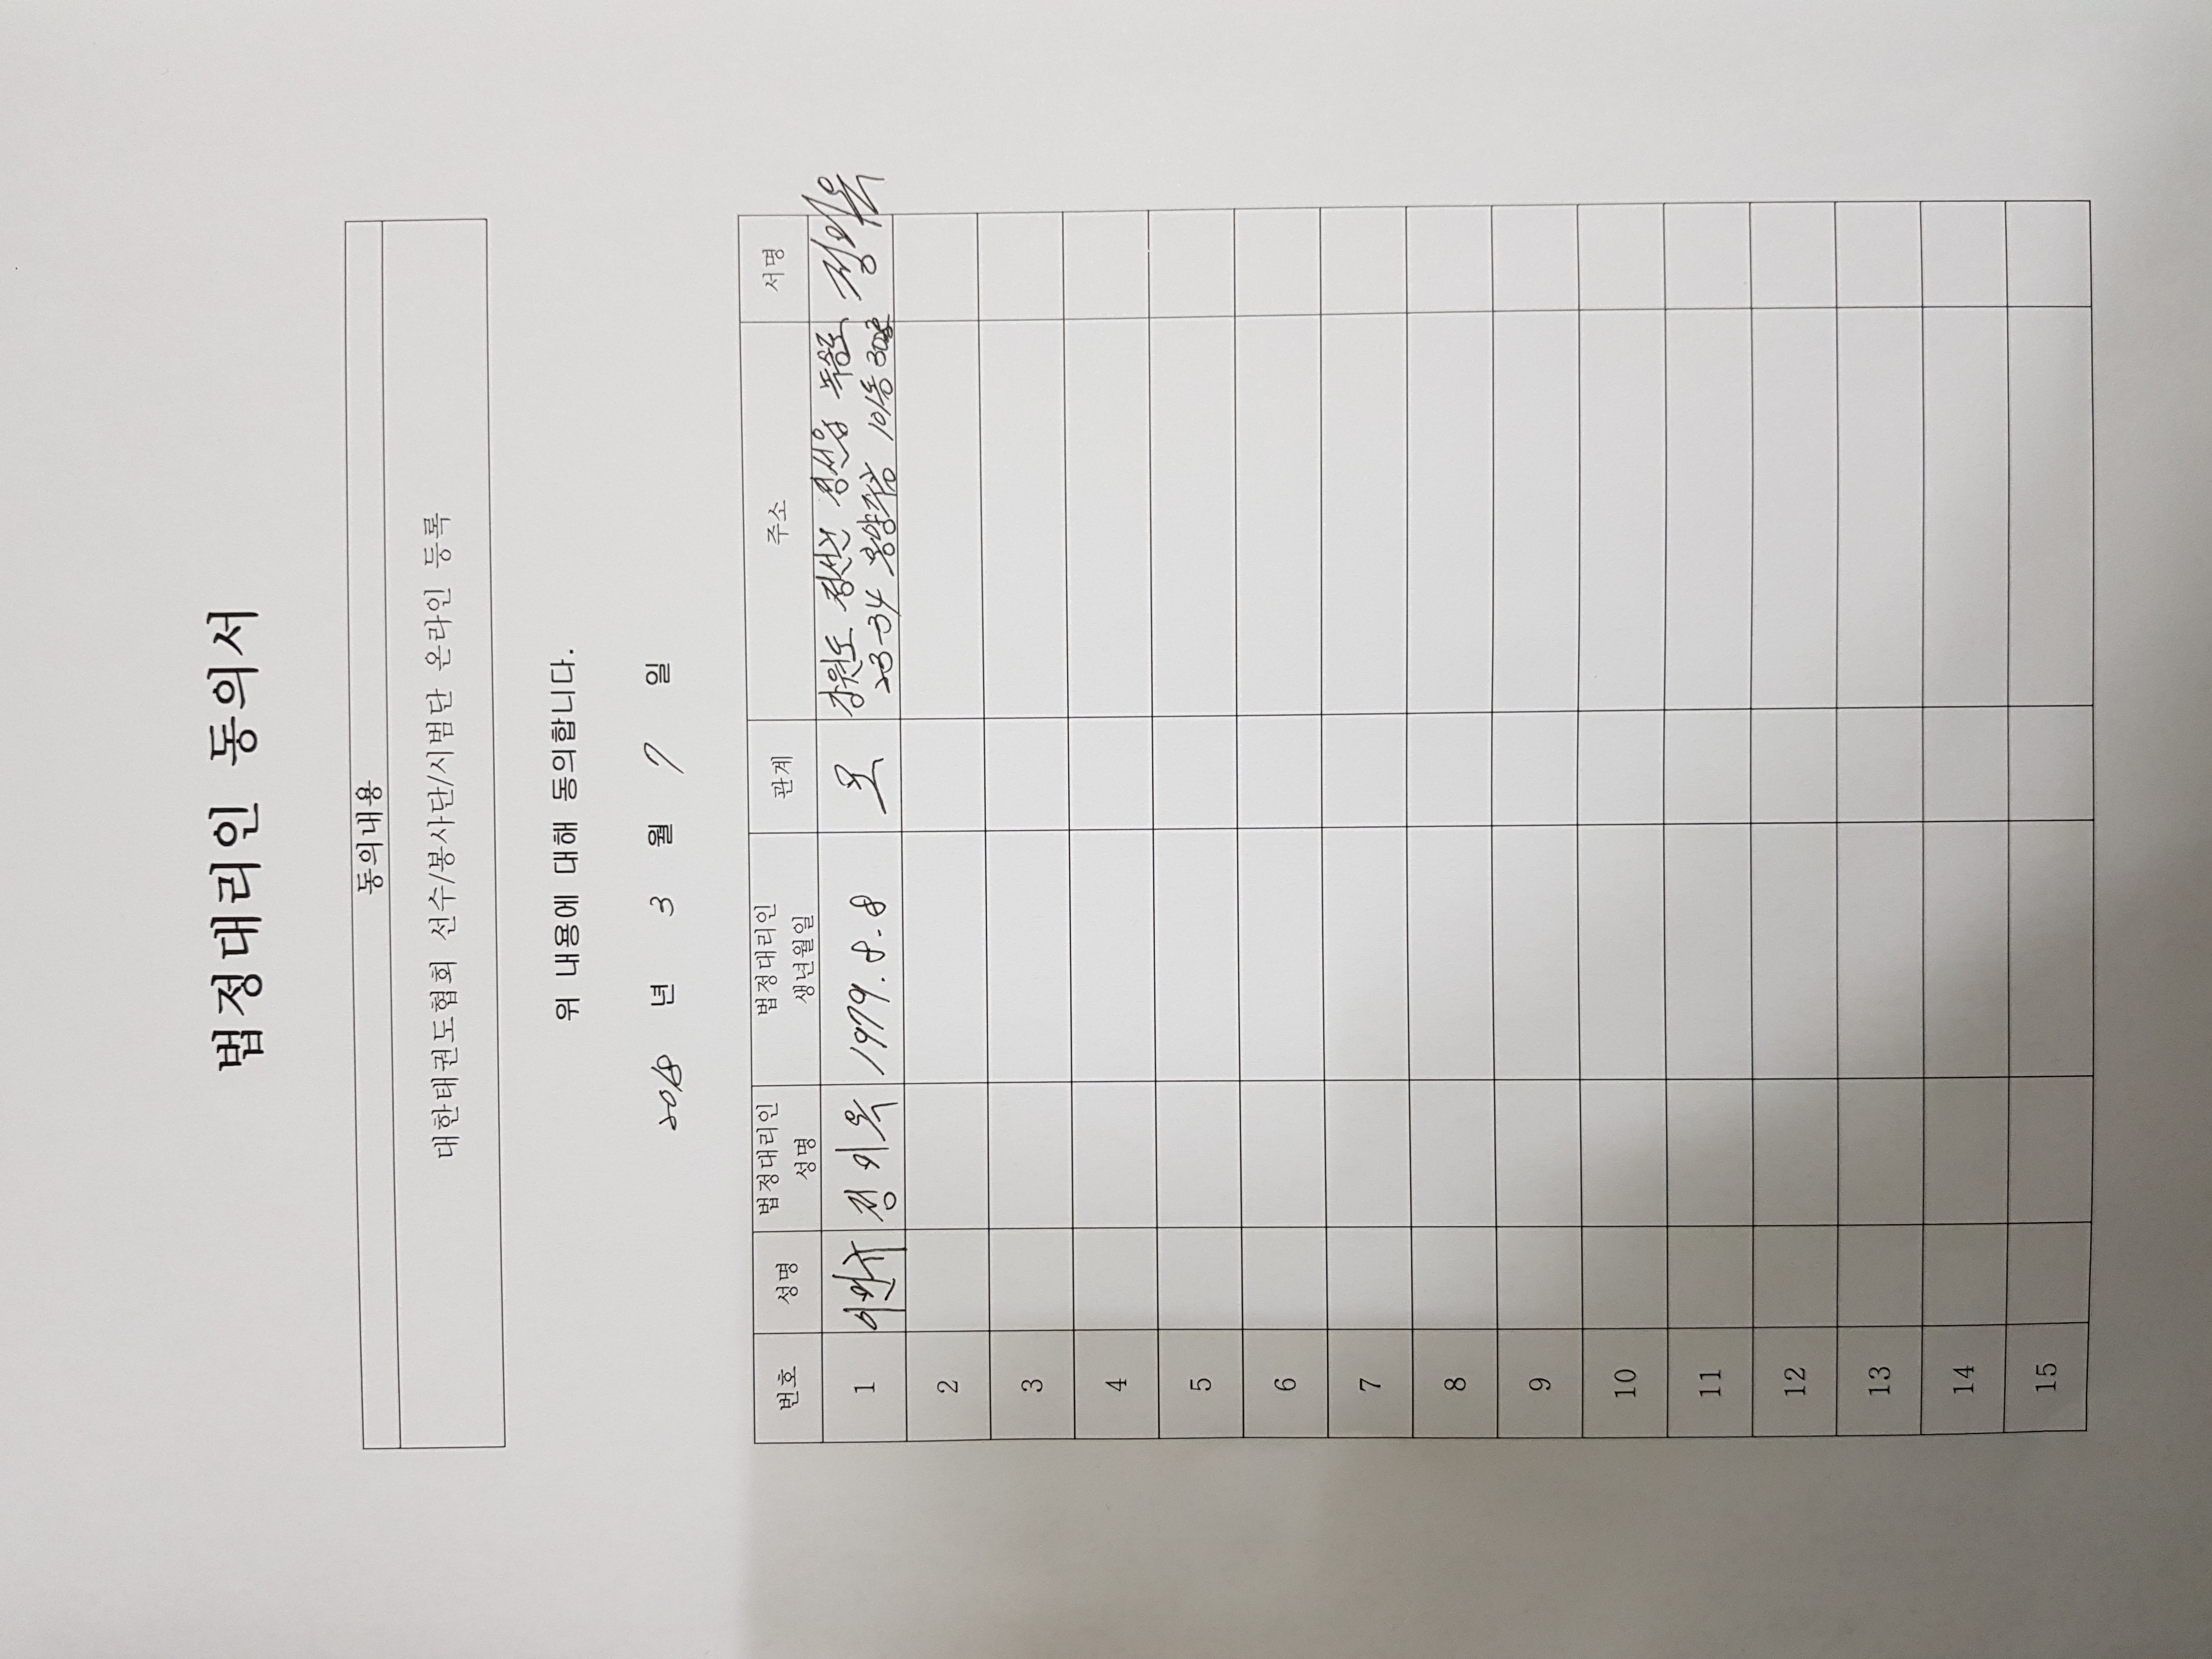 법정대리인 동의서
동의내용
대한태권도협회 선수/봉사단/시범단 온라인 등록
위 내용에 대해 동의합니다.
2018 년 3 월 7 일
번호 성명 법정대리인 성명 법정대리인 생년월일 관계 주소 서명
1 정미옥 1979.8.8 모 강원도 정선군 정선읍 녹송로
23-34 101동 303
2
3
4
5
6
7
8
9
10
11
12
13
14
15